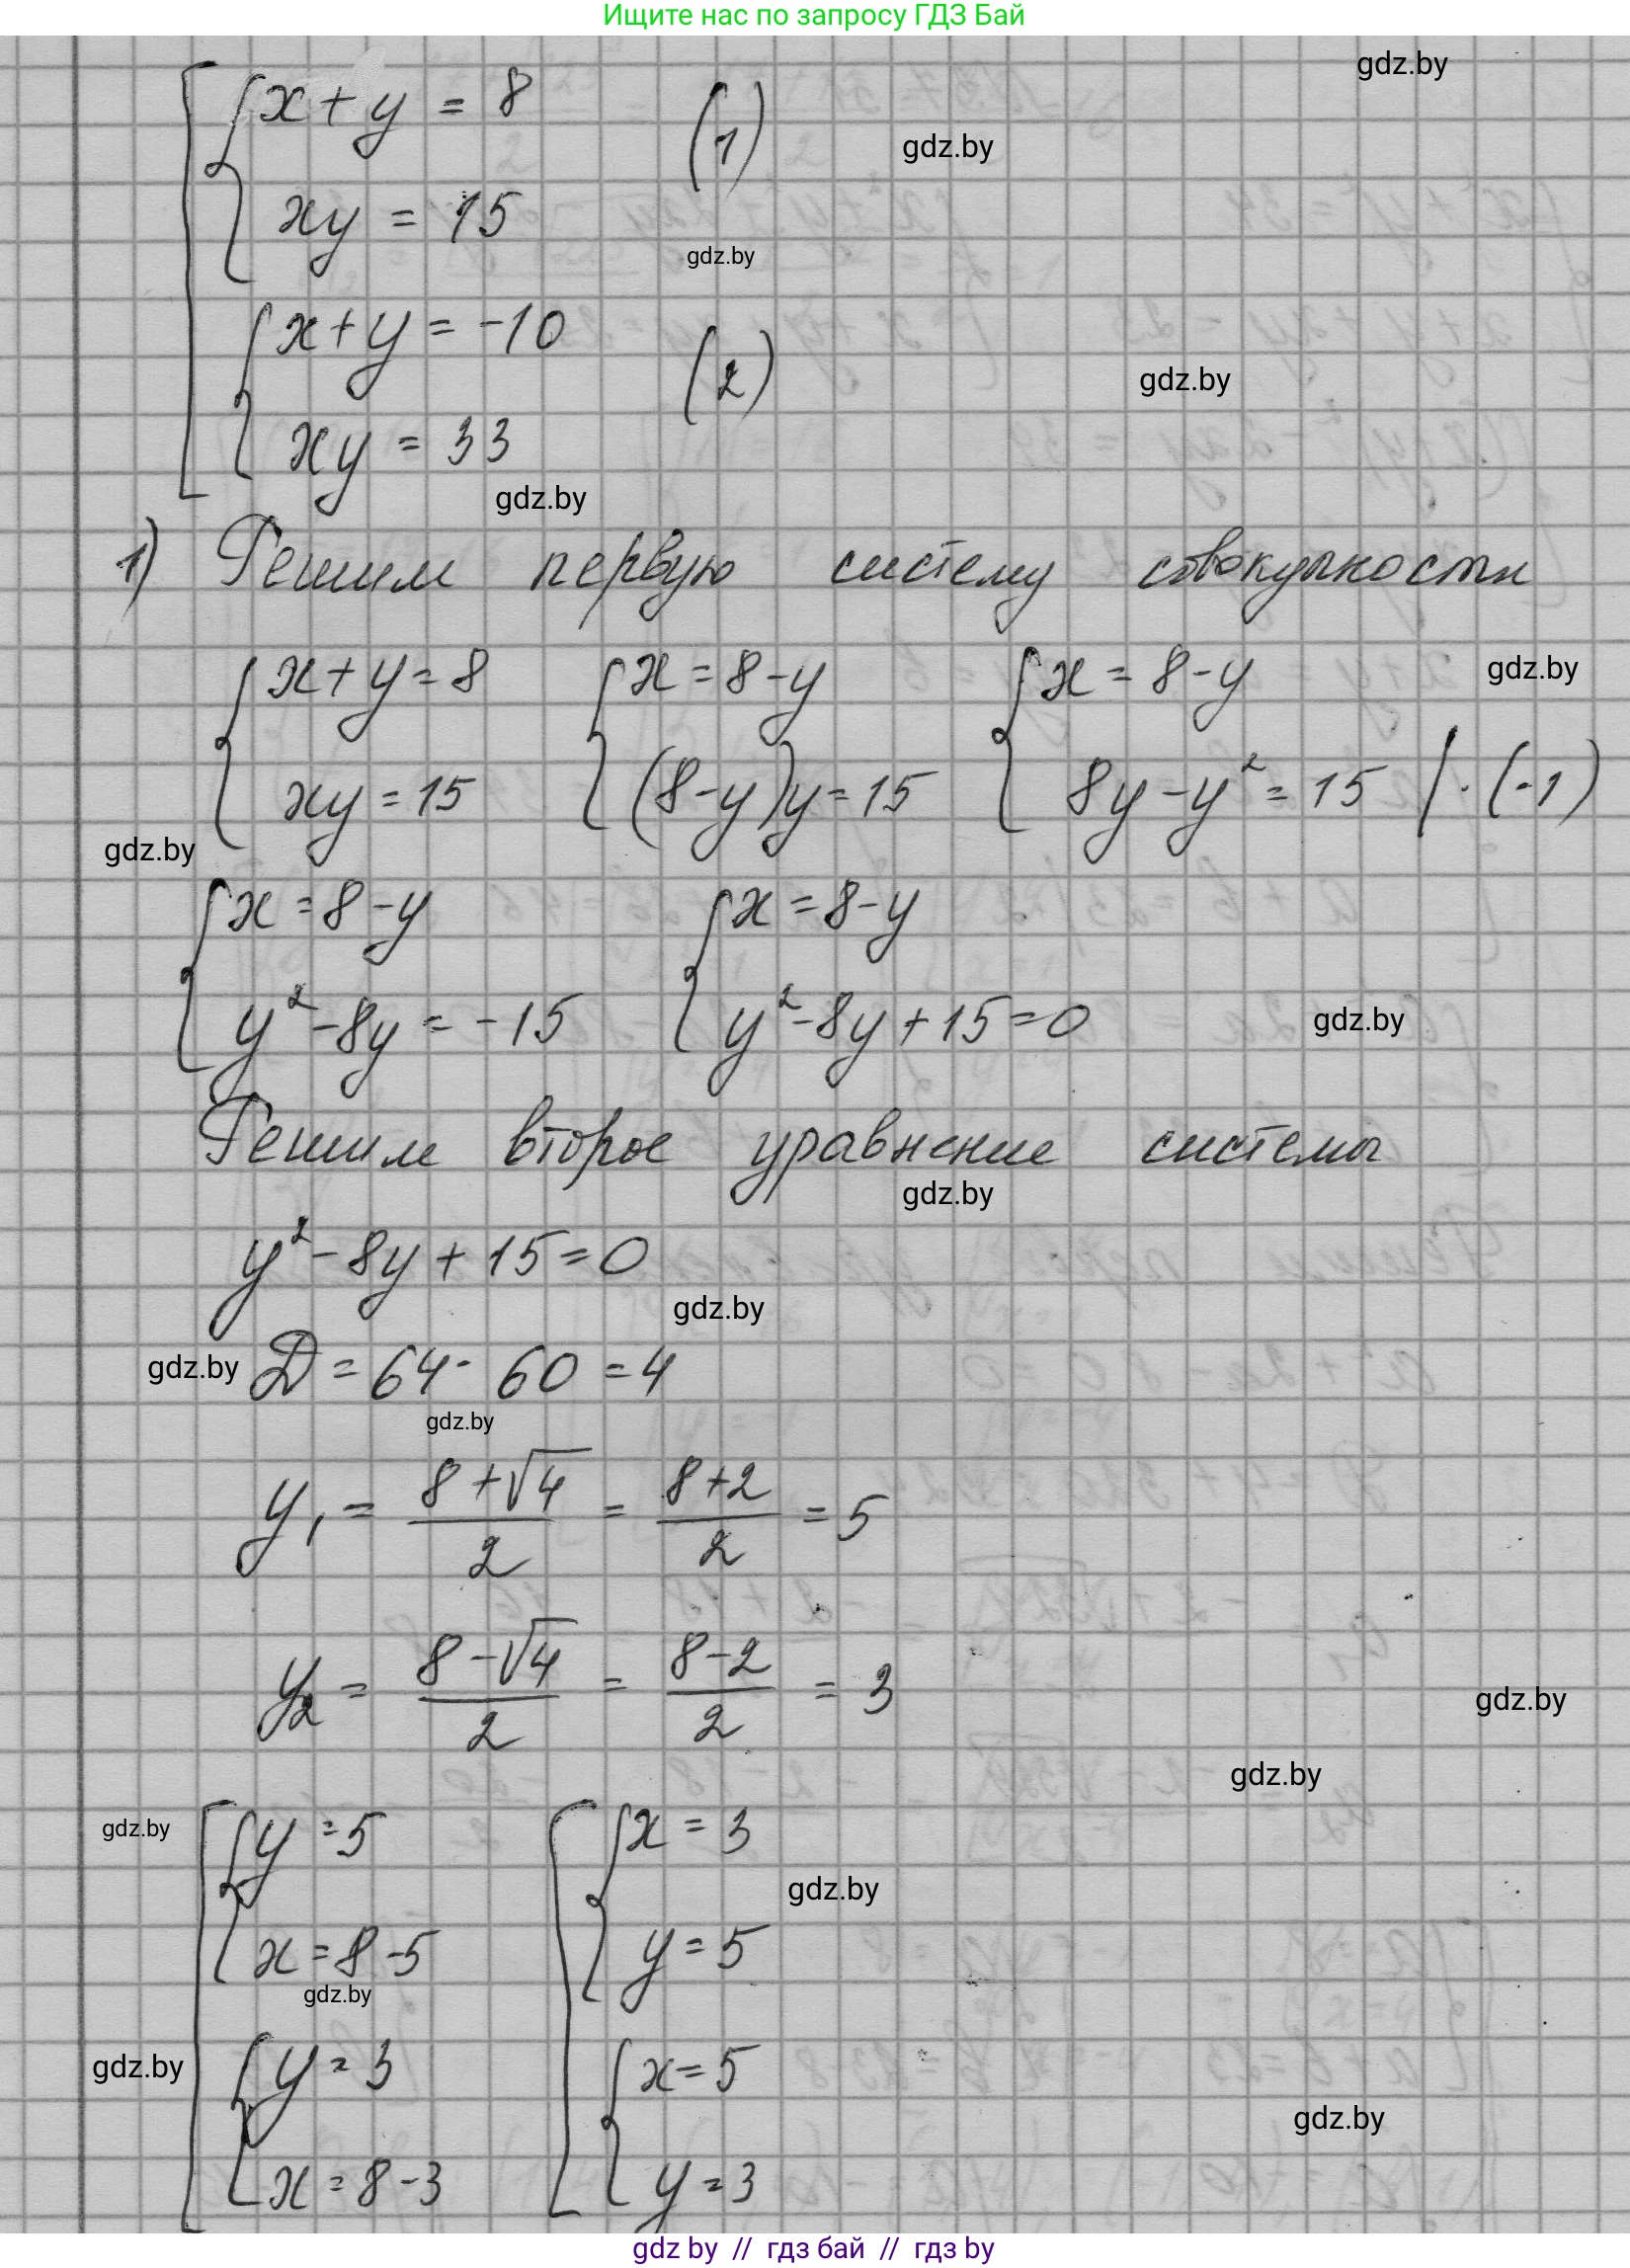 Ищите нас по запросу ГДЗ Бай
gdz.by
x + y = 8 (1)
gdz.by
xy = 15
gdz.by
x + y = -10 (2)
gdz.by
xy = 33
gdz.by
1) Решим первую систему совокупности
x + y = 8 x = 8 - y x = 8 - y
gdz.by
xy = 15 (8 - y)y = 15 8y - y² = 15 | · (-1)
gdz.by
x = 8 - y x = 8 - y
y² - 8y = -15 y² - 8y + 15 = 0
gdz.by
Решим второе уравнение системы
gdz.by
y² - 8y + 15 = 0
gdz.by
gdz.by
D = 64 - 60 = 4
gdz.by
y₁ = (8 + √4)/2 = (8 + 2)/2 = 5
y₂ = (8 - √4)/2 = (8 - 2)/2 = 3
gdz.by
gdz.by
gdz.by
y = 5 x = 3
gdz.by
x = 8 - 5 y = 5
gdz.by
gdz.by
y = 3 x = 5
gdz.by
x = 8 - 3 y = 3
gdz by // гдз бай // гдз by